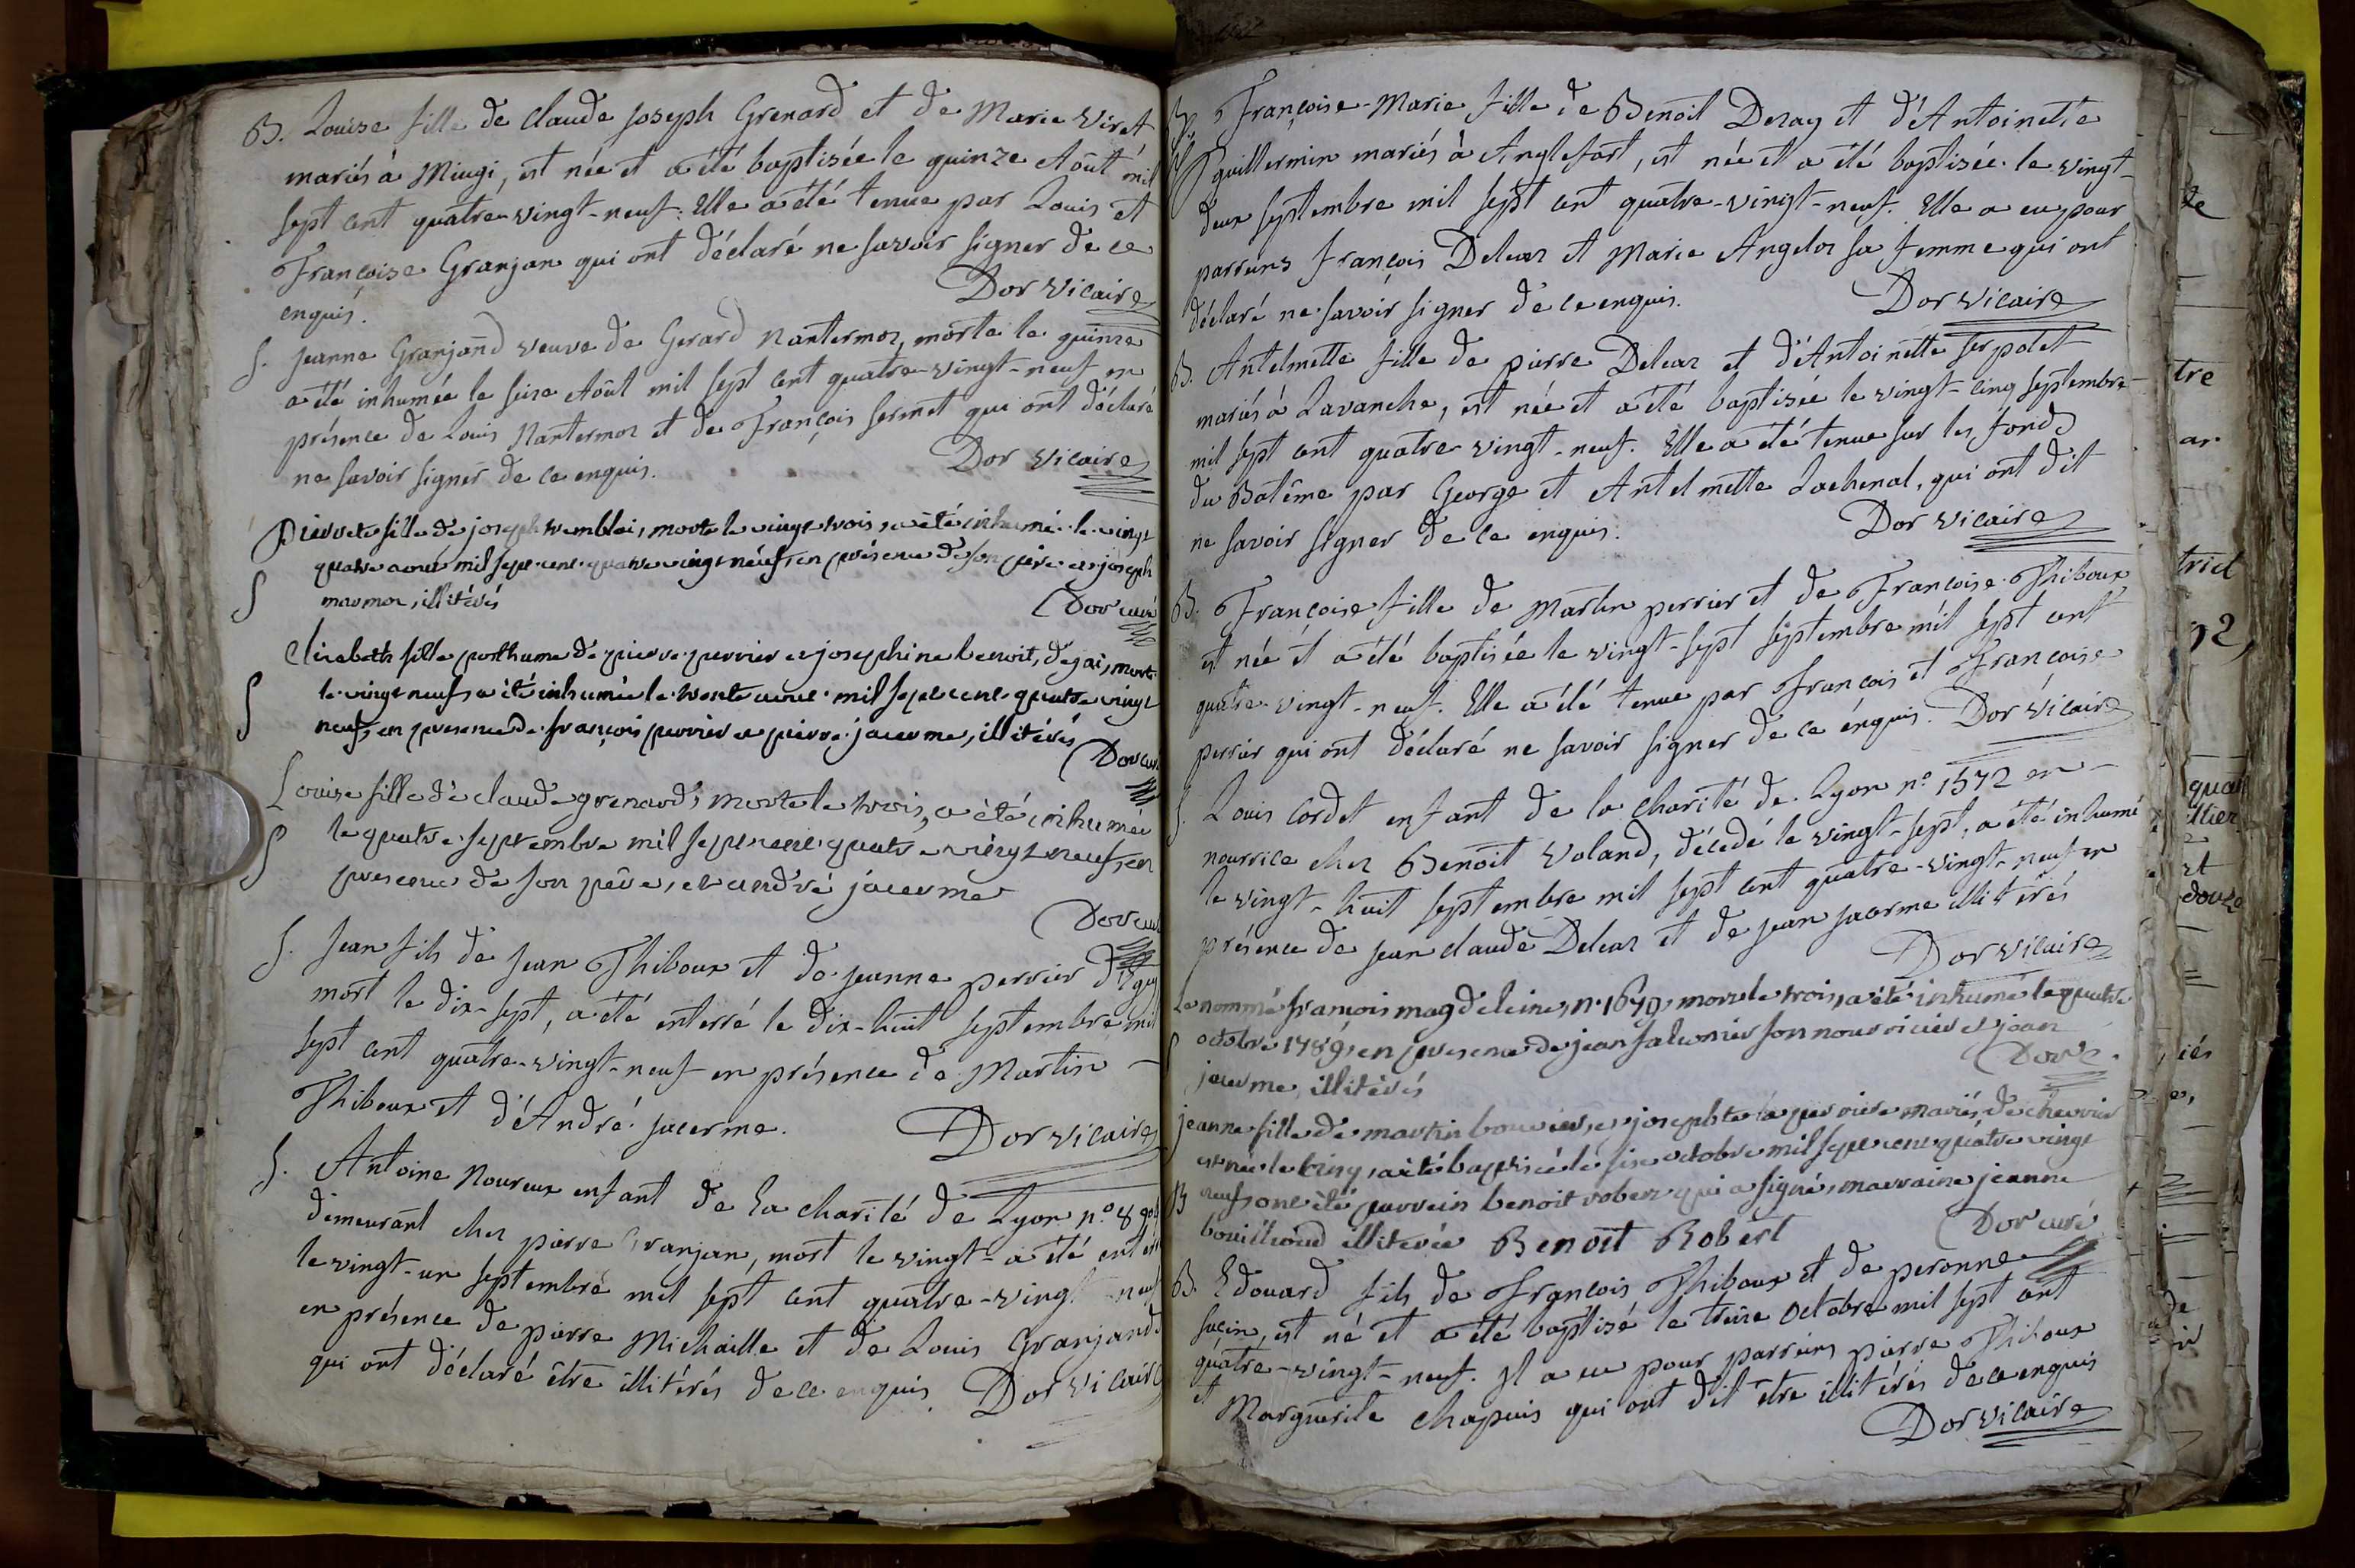 B. Louise fille de Claude Joseph Grenard et de Marie Viret
mariés à Mingi, est née et a été baptisée le quinze Août mil
sept cent quatre-vingt-neuf. Elle a été tenue par Louis et
Françoise Granjan qui ont déclaré ne savoir signer de ce
enquis.
Dor vicaire
S. Jeanne Granjand veuve de Gerard Nantermoz, morte le quinze
a été inhumée le seize Août mil sept cent quatre-vingt-neuf en
présence de Louis Nantermoz et de François Sermet qui ont déclaré
ne savoir signer de ce enquis.
Dor vicaire
pierrete fille de joseph tremblai, morte le vingt trois, a été inhumé le vingt
S quatre aout mil sept cent quatre vingt neuf, en présence de son père et joseph
marmoz, illitérés
Dor curé
Elizabeth fille posthume de pierre perrier et josephine benoit, de jai, morte
S le vingt neuf, a été inhumée le trente aout mil sept cent quatre vingt
neuf, en presence de françois perrier et pierre jacerme, illitérés
Dor curé
Louise fille de claude grenard, morte le trois, a été inhumée
S le quatre septembre mil sept cent quatre vingt neuf, en
presence de son père, et andré jacerme
Dor curé
S. Jean fils de Jean Thiboux et de Jeanne perrier
mort le dix-sept, a été enterré le dix-huit septembre mil
sept cent quatre-vingt-neuf en présence de Martin
Thiboux et d'André jacerme.
Dor vicaire
S. Antoine Noureux enfant de la charité de Lyon n.o
demeurant chez pierre Granjan, mort le vingt a été enterré
le vingt-un septembre mil sept cent quatre-vingt neuf
en présence de pierre Michaille et de Louis Granjand
qui ont déclaré être illitérés de ce enquis.
Dor vicaire
B. Françoise-Marie fille de Benoit Deray et d'Antoinette
guillermin mariés à Anglefort, est née et a été baptisée le vingt-
deux septembre mil sept cent quatre-vingt-neuf. Elle a eu pour
parreins françois Deleaz et Marie Angeloz sa femme qui ont
déclaré ne savoir signer de ce enquis.
Dor vicaire
B. Antelmette fille de pierre Deleaz et d'Antoinette serpolet
mariés à Lavanche, est née et a été baptisée le vingt-cinq septembre
mil sept cent quatre-vingt-neuf. Elle a été tenue sur les fonds
du Batême par George et Antelmette Lachenal, qui ont dit
ne savoir signer de ce enquis.
Dor vicaire
B. Françoise fille de Martin perrier et de Françoise Thiboux
est née et a été baptisée le vingt-sept septembre mil sept cent
quatre-vingt-neuf. Elle a été tenue par François et Françoise
perrier qui ont déclaré ne savoir signer de ce enquis. Dor vicaire
S. Louis Cordet enfant de la charité de Lyon n.o 1572 en
nourrice chez Benoit Voland, décedé le vingt-sept, a été inhumé
le vingt-huit septembre mil sept cent quatre-vingt-neuf en
présence de jean claude Deleaz et de jean jacerme illitérés
Dor vicaire
Le nommé françois magdeleine, n. mort le trois, a été inhumé le quatre
S octobre 1789, en presence de jean falconier son nourricier et jean
jacerme, illitérés
Dor
jeanne fille de martin bouvier, et josephte la perriere mariés, de chevrier
est née le cinq, a été baptisée le six octobre mil sept cent quatre vingt
B neuf, ont été parrein benoit robert qui a signé, marraine jeanne
bouilloud illiterée Benoit Robert
Dor curé
B. Edouard fils de François Thiboux et de peronne
jacin, est né et a été baptisé le treize octobre mil sept cent
quatre-vingt-neuf. Il a eu pour parreins pierre Thiboux
et Marguerite Chapuis qui ont dit être illitérés de ce enquis
Dor vicaire